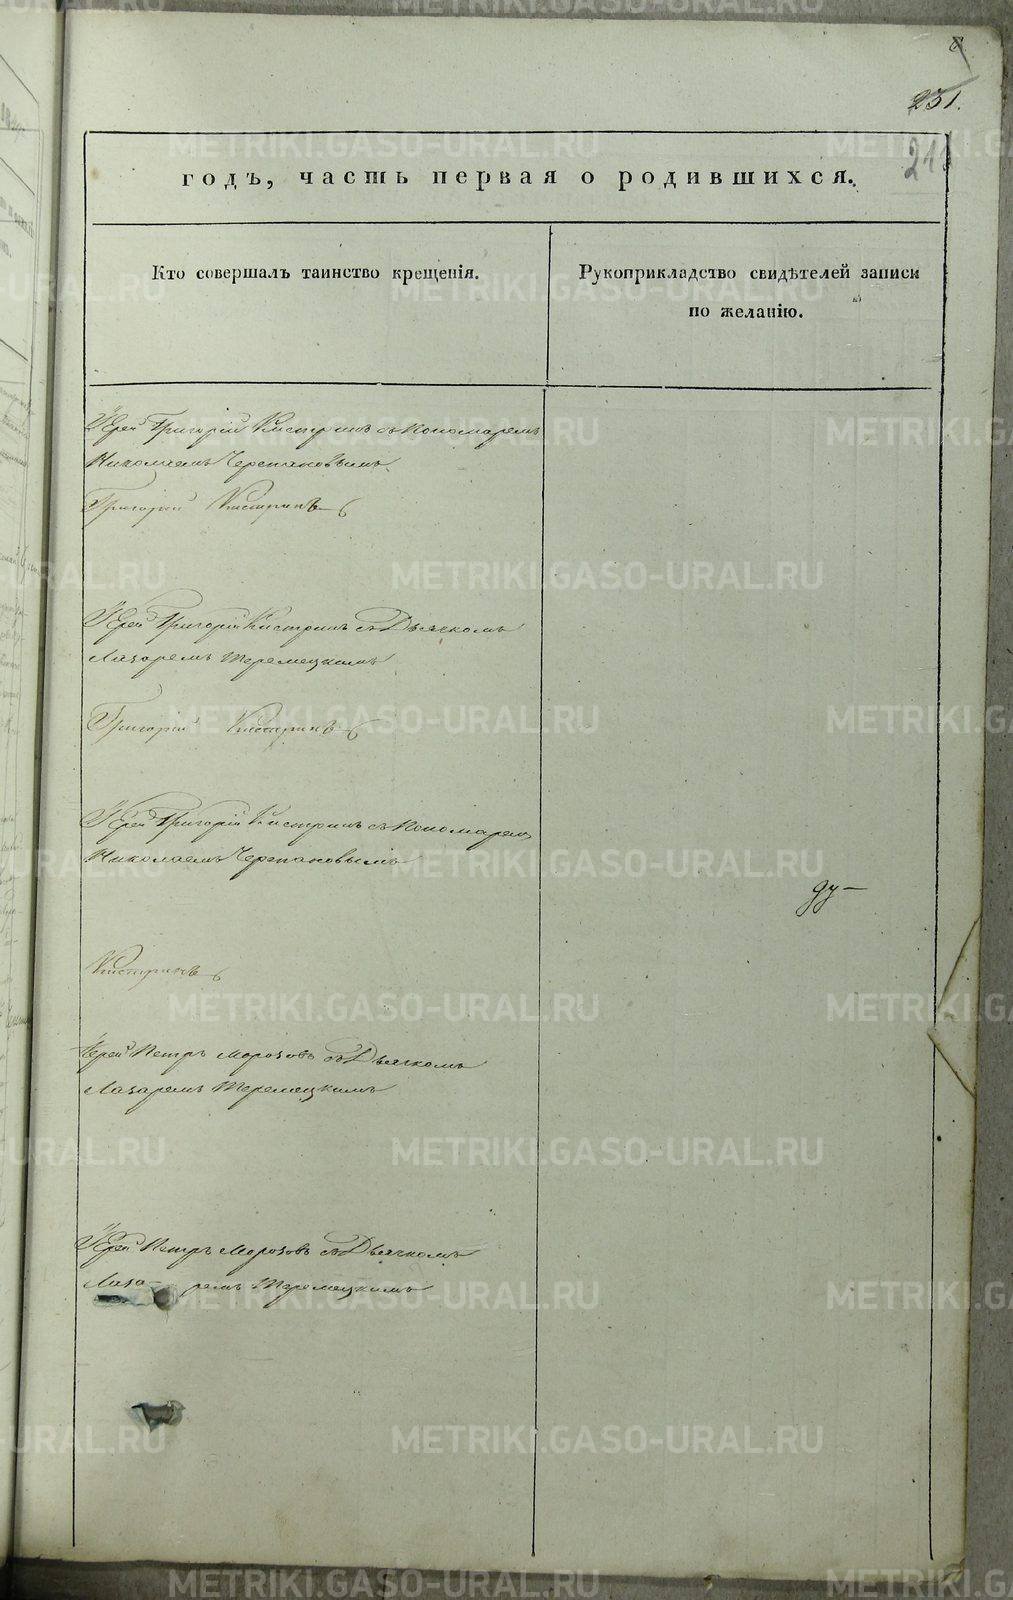 231.
годъ, часть первая о родившихся.
Кто совершалъ таинство крещенія.
Рукоприкладство свидѣтелей записи
по желанію.
Іерей Григорій Кистринъ съ Пономаремъ
Николаемъ Черепановымъ.
Григорій Кистринъ
Іерей Григорій Кистринъ съ Дьячкомъ
Лазаремъ Теремецкимъ
Григорій Кистринъ
Іерей Григорій Кистринъ съ Пономаремъ
Николаемъ Черепановымъ
ду-
Кистринъ
Іерей Петръ Морозовъ съ Дьячкомъ
Лазаремъ Теремецкимъ
Іерей Петръ Морозовъ съ Дьячкомъ
Лаза- ремъ Теремецкимъ
METRIKI.GASO-URAL.RU